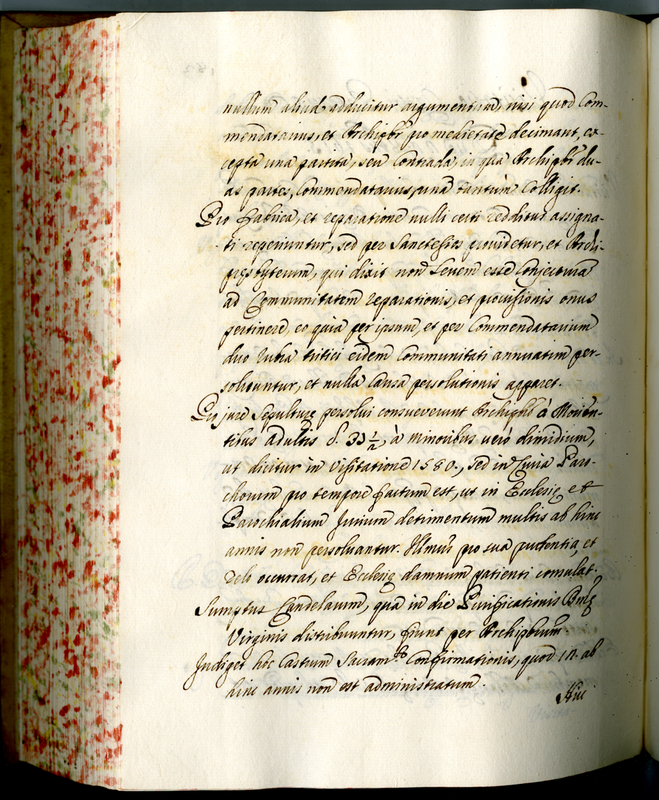 nullum aliud adducitur argumentum, nisi quod Com-
mendatarius, et Archipbr pro medietate decimant, ex-
cepta una partita, seu Contrada, in qua Archipbr du-
as partes, Commendatarius, una tantum Colligit.
Pro fabrica, et reparatione nulli certi redditus assigna-
ti reperiuntur, sed per providetur, et Archi-
presbyterum, qui dixit non levem esse Conjectura
ad Communitatem reparationis, et provisionis onus
pertinere, eo quia per ipsum, et per Commendatarium
duo rubra tritici eidem Communitati annuatim per-
solvuntur, et nulla Causa persolutionis apparet.
Pro jure Sepulturę persolvi consueverunt à Morien-
tibus adultis 33 1/2, à minoribus verò dimidium,
ut dicitur in Visitatione 1580., sed in Paro-
chorum pro tempore factum est, ut in Ecclesię et
Parochialium Jurium detrimentum multis ab hinc
annis non persolvantur. Illmus pro sua prudentia et
zelo occurrat, et Ecclesię damnum patienti consulat.
Sumptus Candelarum, quæ in die Purificationis Bmę
Virginis distribuuntur, fiunt per Archipbrum
Indiget hoc Castrum Sacramto Confirmationis, quod 12. ab
hinc annis non est administratum.
Hic